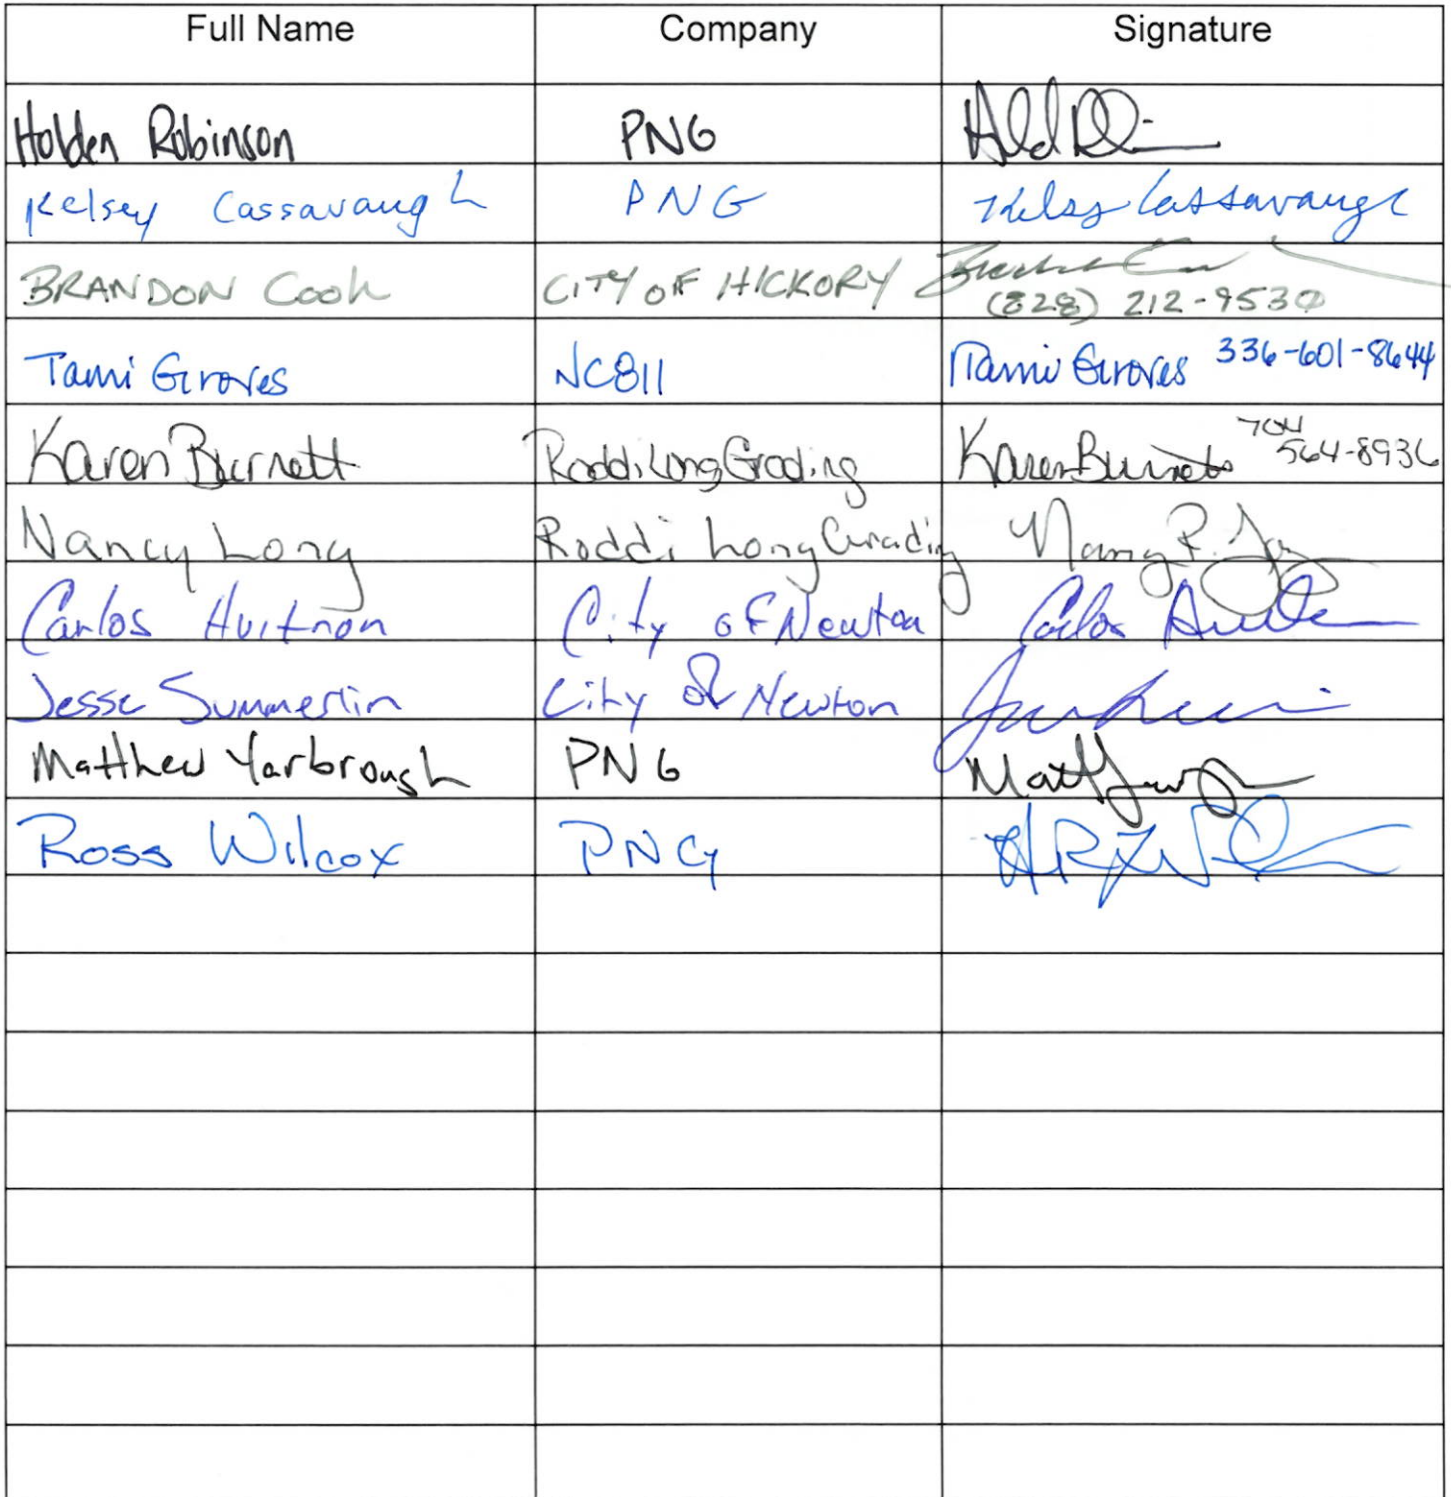 Full Name Company Signature
Holden Robinson PNG
Kelsey Cassavaugh PNG Kelsy Cassavaugh
BRANDON Cook CITY OF HICKORY
(828) 212-9530
Tami Groves NC811 Tami Groves 336-601-8644
704
Karen Burnett Roddi Long Grading Karen Burnett 564-8936
Nancy Long Roddi Long Grading Nancy P. Long
Carlos Huitron City of Newton Carlos
Jesse Summerlin City of Newton
Matthew Yarbrough PNG Matt
Ross Wilcox PNG